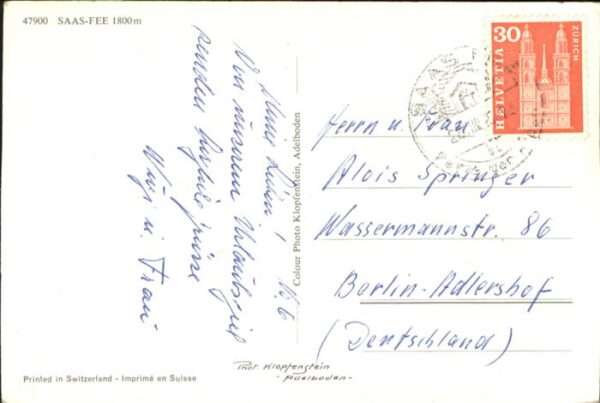 47900 SAAS-FEE 1800 m
Meine Lieben! 16/6
Von unserem Urlaubsziel
senden herzliche Grüsse
u. Frau
Colour Photo Klopfenstein, Adelboden
30
HELVETIA
ZÜRICH
SAAS
Herrn u. Frau
Alois Springer
Wassermannstr. 86
Berlin-Adlershof
(Deutschland)
Phot. Klopfenstein
- Adelboden -
Printed in Switzerland - Imprimé en Suisse